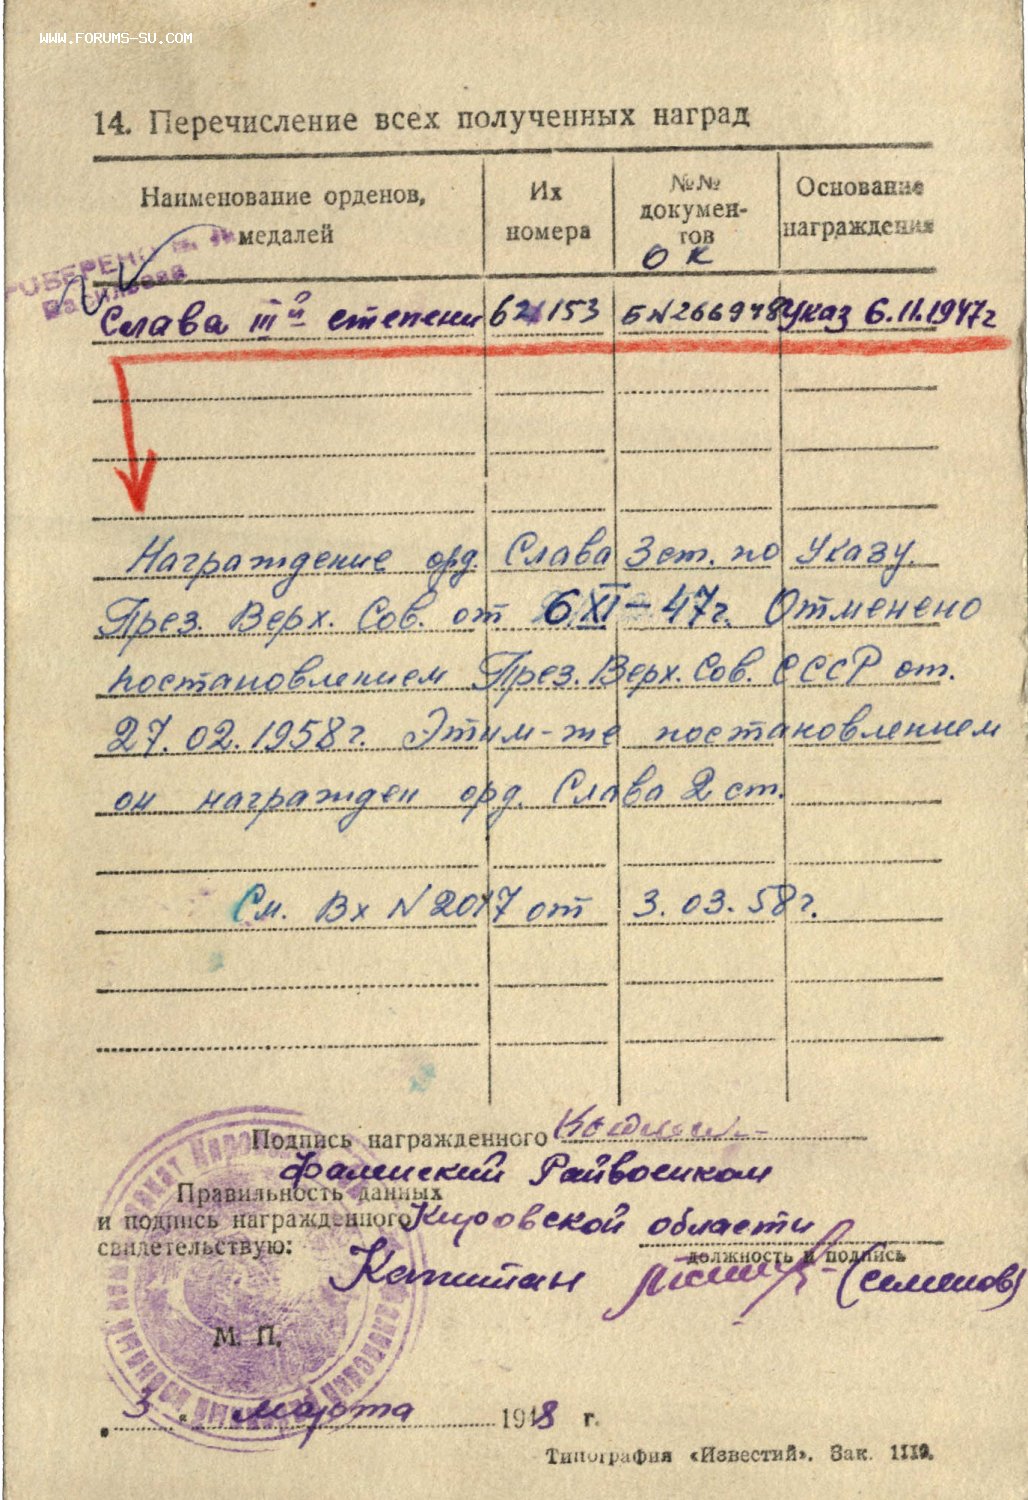 WWW.FORUMS-SU.COM
14. Перечисление всех полученных наград
Наименование орденов, медалей
Их номера
№№ документов
Основание награждения
ОК
Васильева
Слава III й степени 621153 Б N266948 Указ 6.11.1947г
Награждение орд. Слава 3 ст. по Указу.
През. Верх. Сов. от 6 XI-47г. Отменено
постановлением През. Верх. Сов. СССР от.
27.02.1958г. Этим-же постановлением
он награжден орд. Слава 2 ст.
См. Вх N 2017 от 3.03.58г.
Подпись награжденного
Фаленский Райвоенком
Правильность данных
и подпись награжденного Кировской области
свидетельствую:
должность и подпись
Капитан (Семенов)
М. П.
3 " марта 1948 г.
Типография «Известий». Зак. 1119.